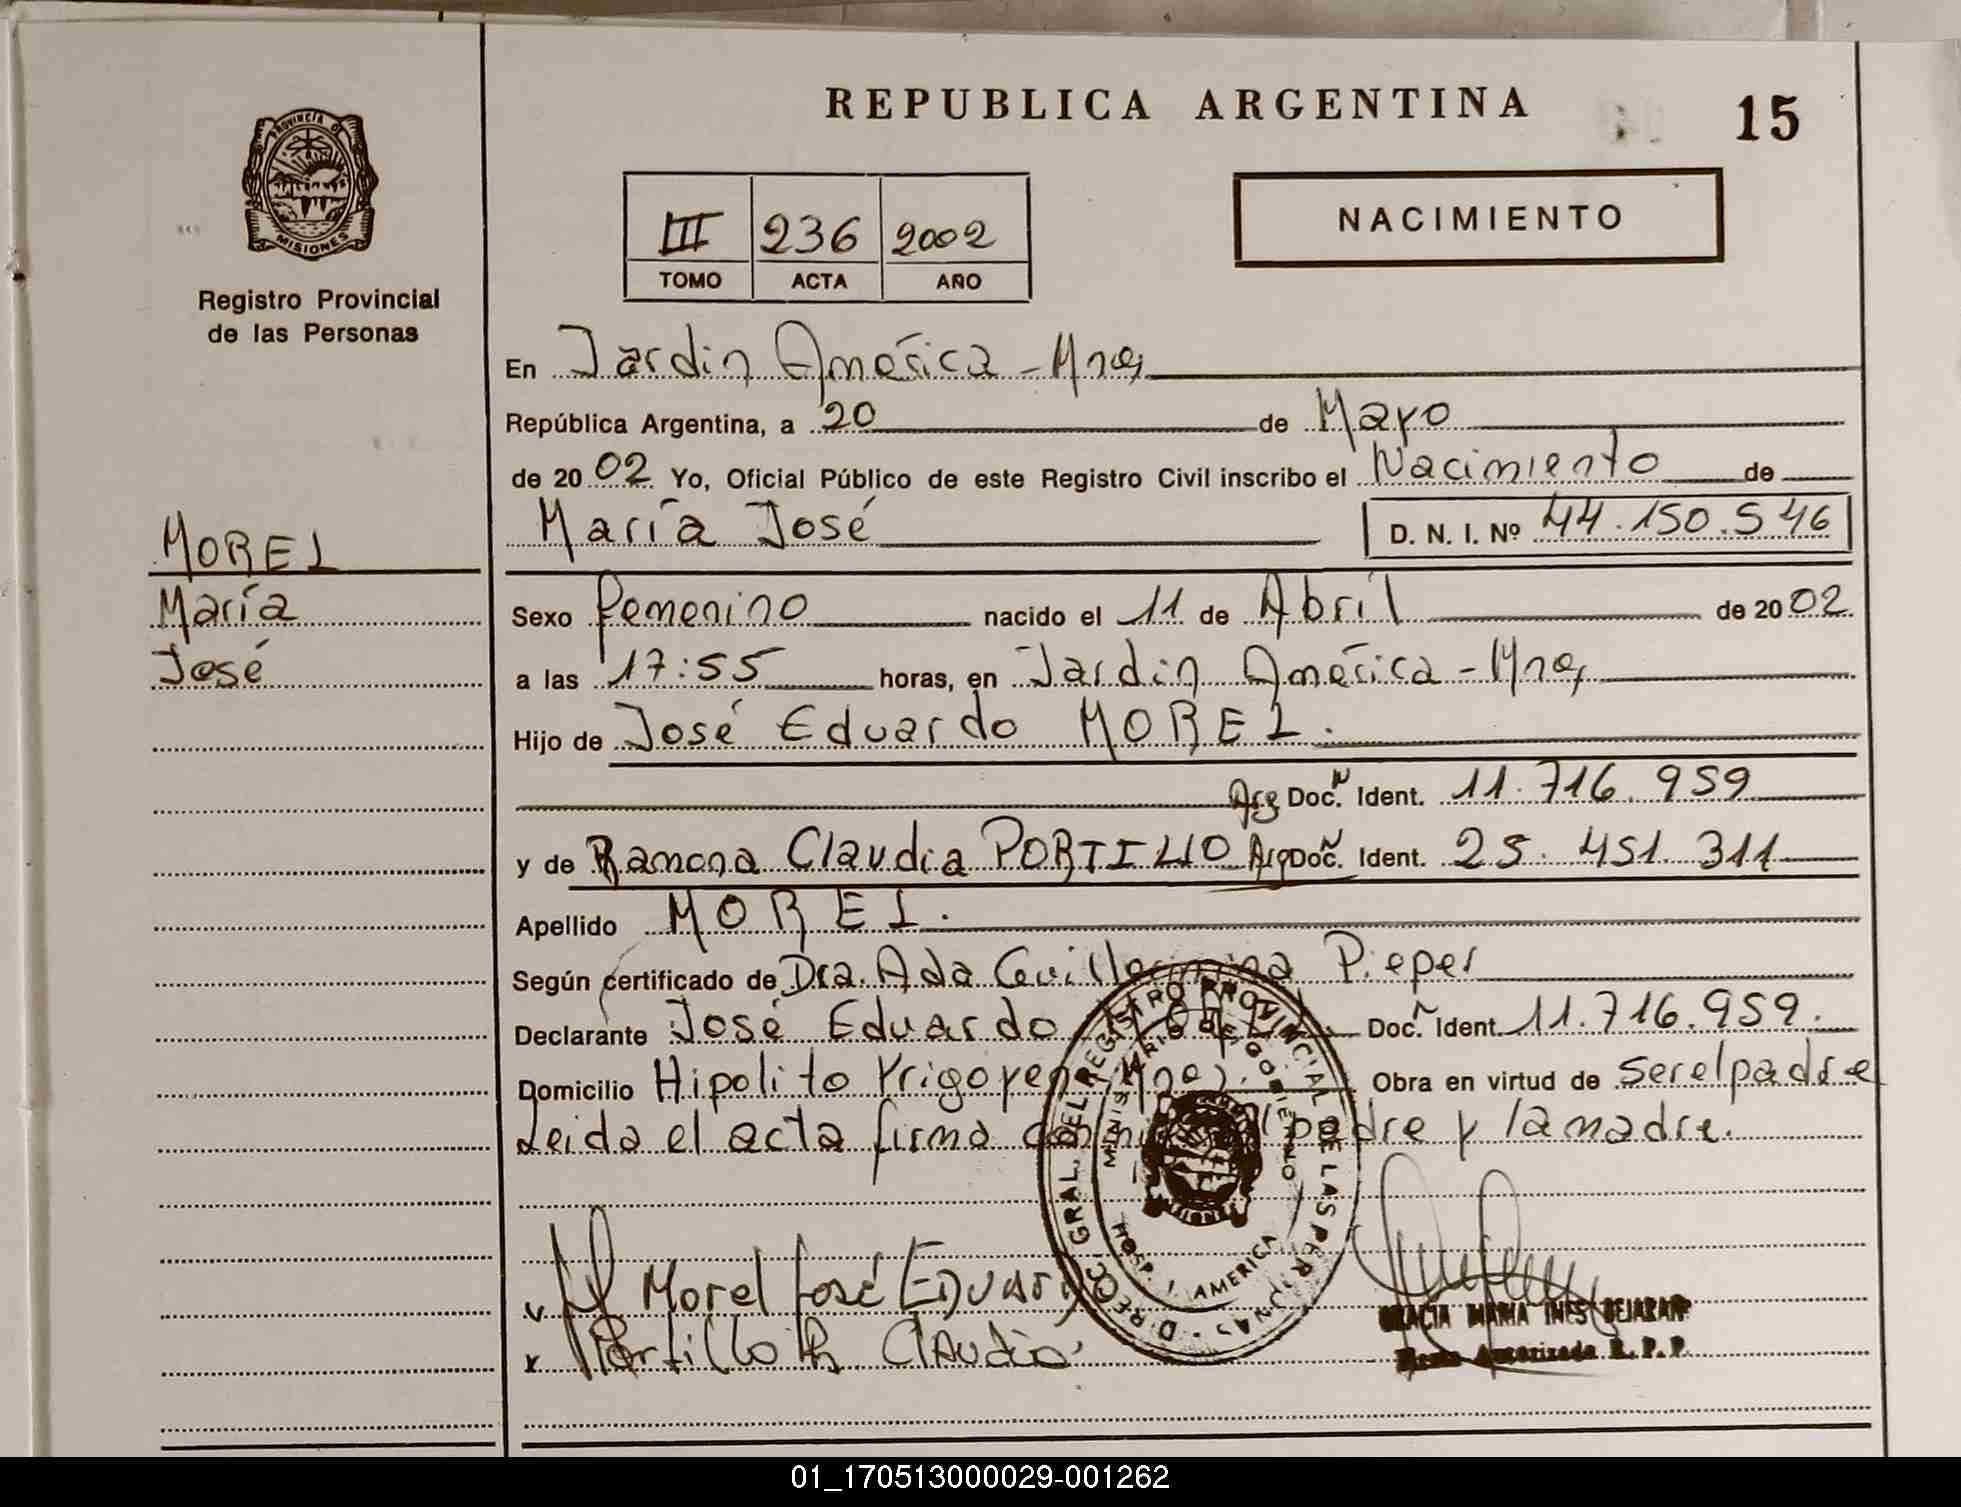 REPUBLICA ARGENTINA
15
PROVINCIA D
MISIONES
Registro Provincial
de las Personas
III 236 2002
TOMO ACTA AÑO
NACIMIENTO
En Jardin América - Mnes
República Argentina, a 20 de Mayo
de 2002 Yo, Oficial Público de este Registro Civil inscribo el Nacimiento de
María José D. N. I. Nº 44.150.546
MOREL
María
José
Sexo femenino nacido el 11 de Abril de 2002
a las 17:55 horas, en Jardin América - Mnes
Hijo de José Eduardo MOREL.
Arg Doc. N Ident. 11.716.959
y de Ramona Claudia PORTILLO Arg Doc. N Ident. 25.451.311
Apellido MOREL.
Según certificado de Dra. Ada Guillermina Pieper
Declarante José Eduardo Doc. N Ident. 11.716.959.
Domicilio Hipolito Yrigoyen Mnes. Obra en virtud de ser el padre
Leida el acta firma padre y la madre.
DIRECC. GRAL. DEL REGISTRO PROVINCIAL DE LAS PERSONAS
MINISTERIO DE GOBIERNO
HOSP. J. AMERICA
MISIONES
Morel José Eduardo
Portillo R Claudia
GRACIA MARIA INES BEJARANO
Autorizada R. P. P.
01_170513000029-001262